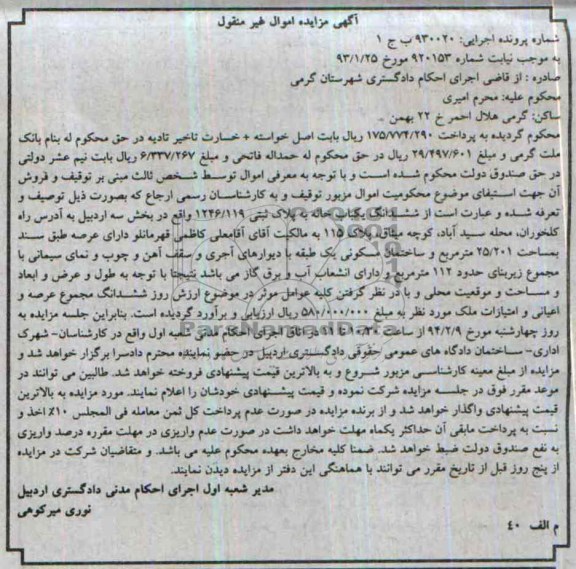 آگهی مزایده اموال غیر منقول
شماره پرونده اجرایی: ۹۳۰۰۲۰ ب ج ۱
به موجب نیابت شماره ۹۲۰۱۵۳ مورخ ۹۳/۱/۲۵
صادره : از قاضی اجرای احکام دادگستری شهرستان گرمی
محکوم علیه: محرم امیری
ساکن: گرمی هلال احمر خ ۲۲ بهمن
محکوم گردیده به پرداخت ۱۷۵/۷۷۴/۲۹۰ ریال بابت اصل خواسته + خسارت تاخیر تادیه در حق محکوم له بنام بانک
ملت گرمی و مبلغ ۲۹/۴۹۷/۶۰۱ ریال در حق محکوم له حمداله فاتحی و مبلغ ۶/۳۳۷/۲۶۷ ریال بابت نیم عشر دولتی
در حق صندوق دولت محکوم شده است و با توجه به معرفی اموال توسط شخص ثالث مبنی بر توقیف و فروش
آن جهت استیفای موضوع محکومیت اموال مزبور توقیف و به کارشناسان رسمی ارجاع که بصورت ذیل توصیف و
تعرفه شده و عبارت است از ششدانگ یکباب خانه به پلاک ثبتی ۱۲۴۶/۱۱۹ واقع در بخش سه اردبیل به آدرس راه
کلخوران، محله سید آباد، کوچه میثاق، پلاک ۱۱۵ به مالکیت آقای آقامعلی کاظمی قهرمانلو دارای عرصه طبق سند
بمساحت ۲۵/۲۰۱ مترمربع و ساختمان مسکونی یک طبقه با دیوارهای آجری و سقف آهن و چوب و نمای سیمانی با
مجموع زیربنای حدود ۱۱۲ مترمربع و دارای انشعاب آب و برق گاز می باشد نتیجتا با توجه به طول و عرض و ابعاد
و مساحت و موقعیت محلی و با در نظر گرفتن کلیه عوامل موثر در موضوع ارزش روز ششدانگ مجموع عرصه و
اعیانی و امتیازات ملک مورد نظر به مبلغ ۵۸۰/۰۰۰/۰۰۰ ریال ارزیابی و برآورد گردیده است. بنابراین جلسه مزایده به
روز چهارشنبه مورخ ۹۴/۲/۹ از ساعت ۱۰ تا ۱۱ در اتاق اجرای احکام مدنی شعبه اول واقع در کارشناسان- شهرک
اداری- ساختمان دادگاه های عمومی حقوقی دادگستری اردبیل در حضور نماینده محترم دادسرا برگزار خواهد شد و
مزایده از مبلغ معینه کارشناسی مزبور شروع و به بالاترین قیمت پیشنهادی فروخته خواهد شد. طالبین می توانند در
موعد مقرر فوق در جلسه مزایده شرکت نموده و قیمت پیشنهادی خودشان را اعلام نمایند. مورد مزایده به بالاترین
قیمت پیشنهادی واگذار خواهد شد و از برنده مزایده در صورت عدم پرداخت کل ثمن معامله فی المجلس ۱۰٪ اخذ و
نسبت به پرداخت مابقی آن حداکثر یکماه مهلت خواهد داشت در صورت عدم واریزی در مهلت مقرره درصد واریزی
به نفع صندوق دولت ضبط خواهد شد. ضمنا کلیه مخارج بعهده محکوم علیه می باشد. و متقاضیان شرکت در مزایده
از پنج روز قبل از تاریخ مقرر می توانند با هماهنگی این دفتر از مزایده دیدن نمایند.
مدیر شعبه اول اجرای احکام مدنی دادگستری اردبیل
نوری میرکوهی
م الف ۴۰